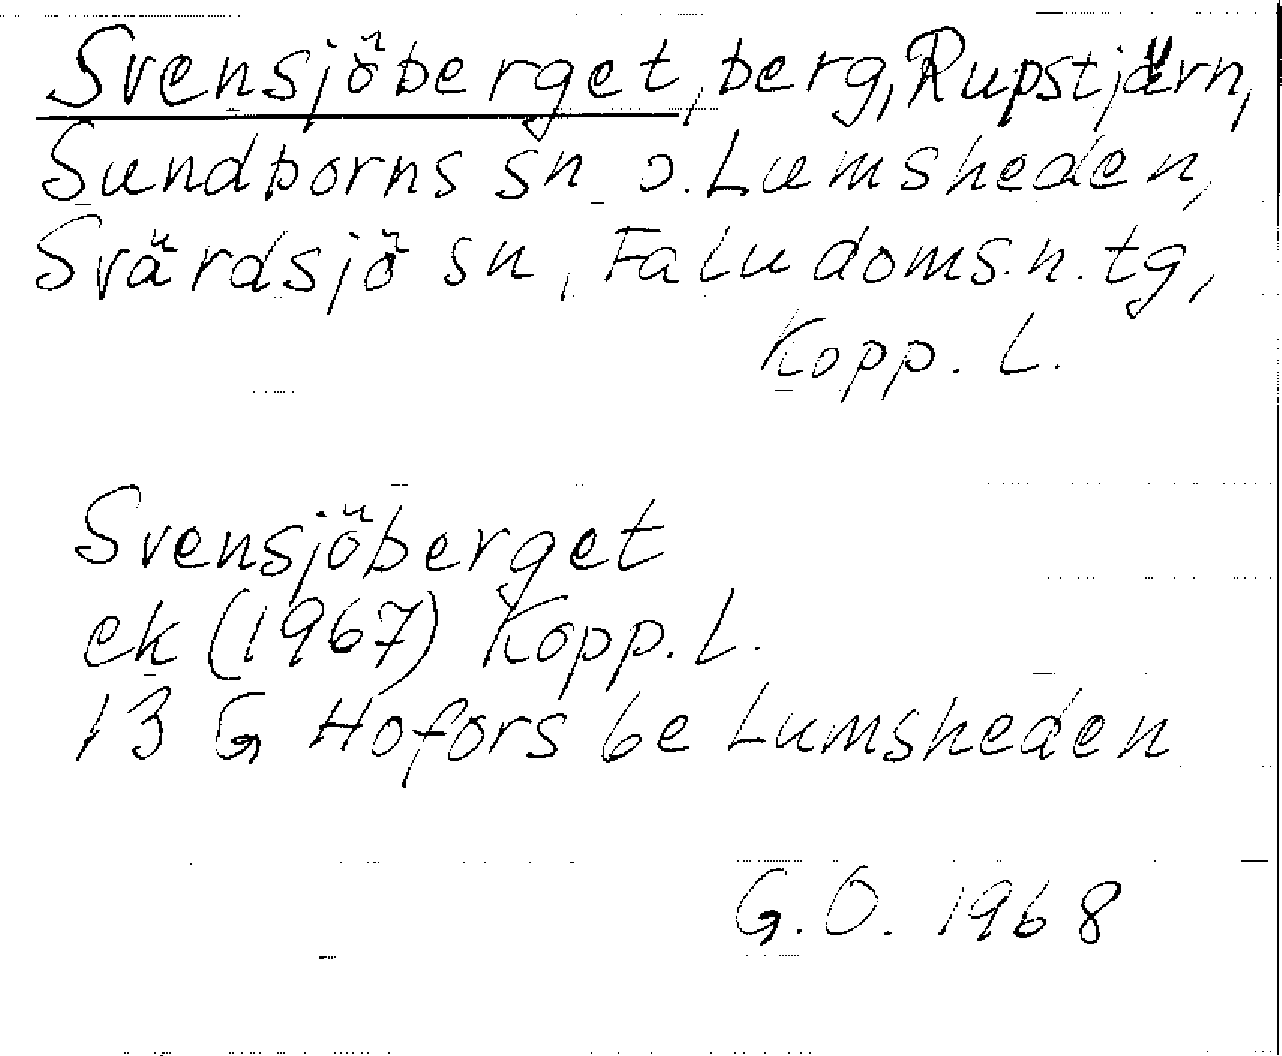 Svensjöberget, berg, Rupstjärn,
Sundborns sn o. Lumsheden,
Svärdsjö sn, Falu doms.n. tg,
Kopp. L.
Svensjöberget
ek (1967) Kopp. L.
13 G Hofors 6e Lumsheden
G.O. 1968